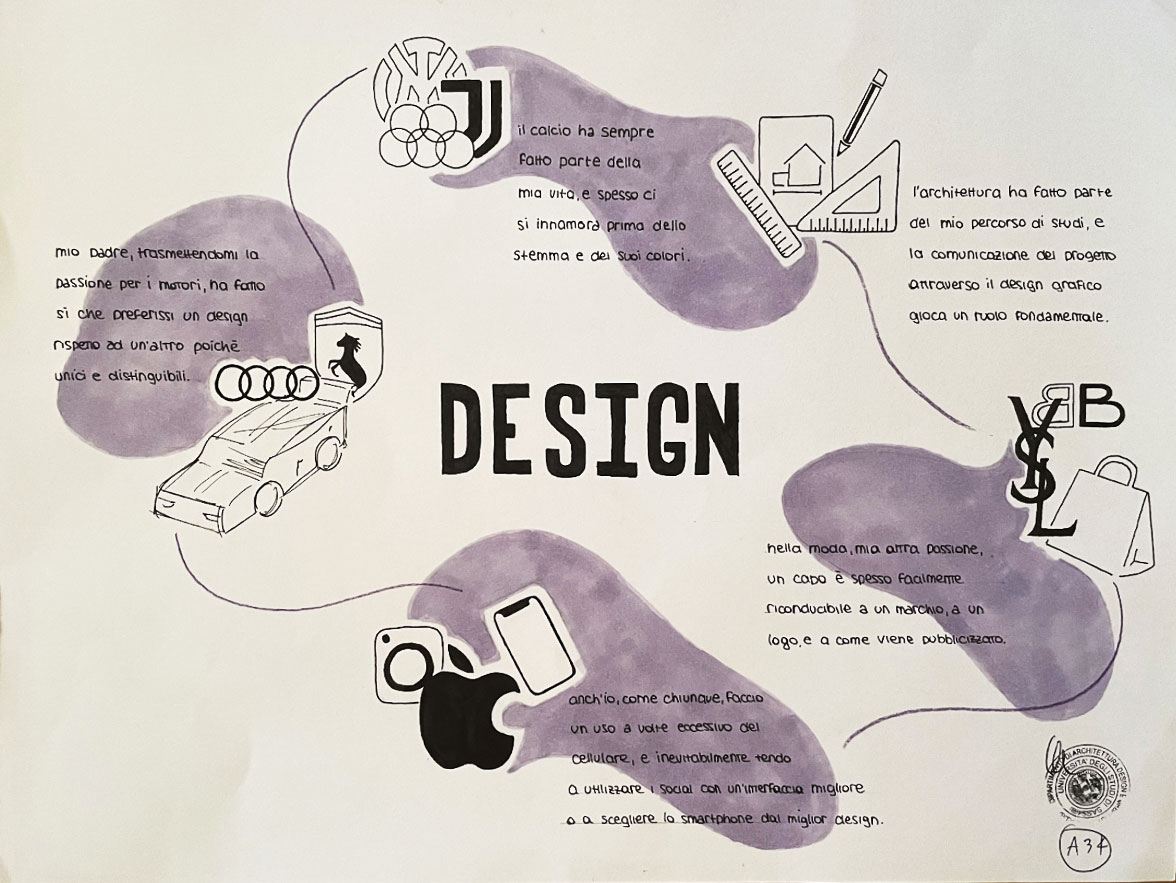 il calcio ha sempre
fatto parte della
mia vita, e spesso ci
si innamora prima dello
stemma e dei suoi colori.
l'architettura ha fatto parte
del mio percorso di studi, e
la comunicazione del progetto
attraverso il design grafico
gioca un ruolo fondamentale.
mio padre, trasmettendomi la
passione per i motori, ha fatto
sì che preferissi un design
rispetto ad un'altro poichè
unici e distinguibili.
DESIGN
BB
YSL
nella moda, mia altra passione,
un capo è spesso facilmente
riconducibile a un marchio, a un
logo, e a come viene pubblicizzato.
anch'io, come chiunque, faccio
un uso a volte eccessivo del
cellulare, e inevitabilmente tendo
a utilizzare i social con un'interfaccia migliore
o a scegliere lo smartphone dal miglior design.
DIPARTIMENTO DI ARCHITETTURA, DESIGN E
UNIVERSITA' DEGLI STUDI DI
SASSARI
A34